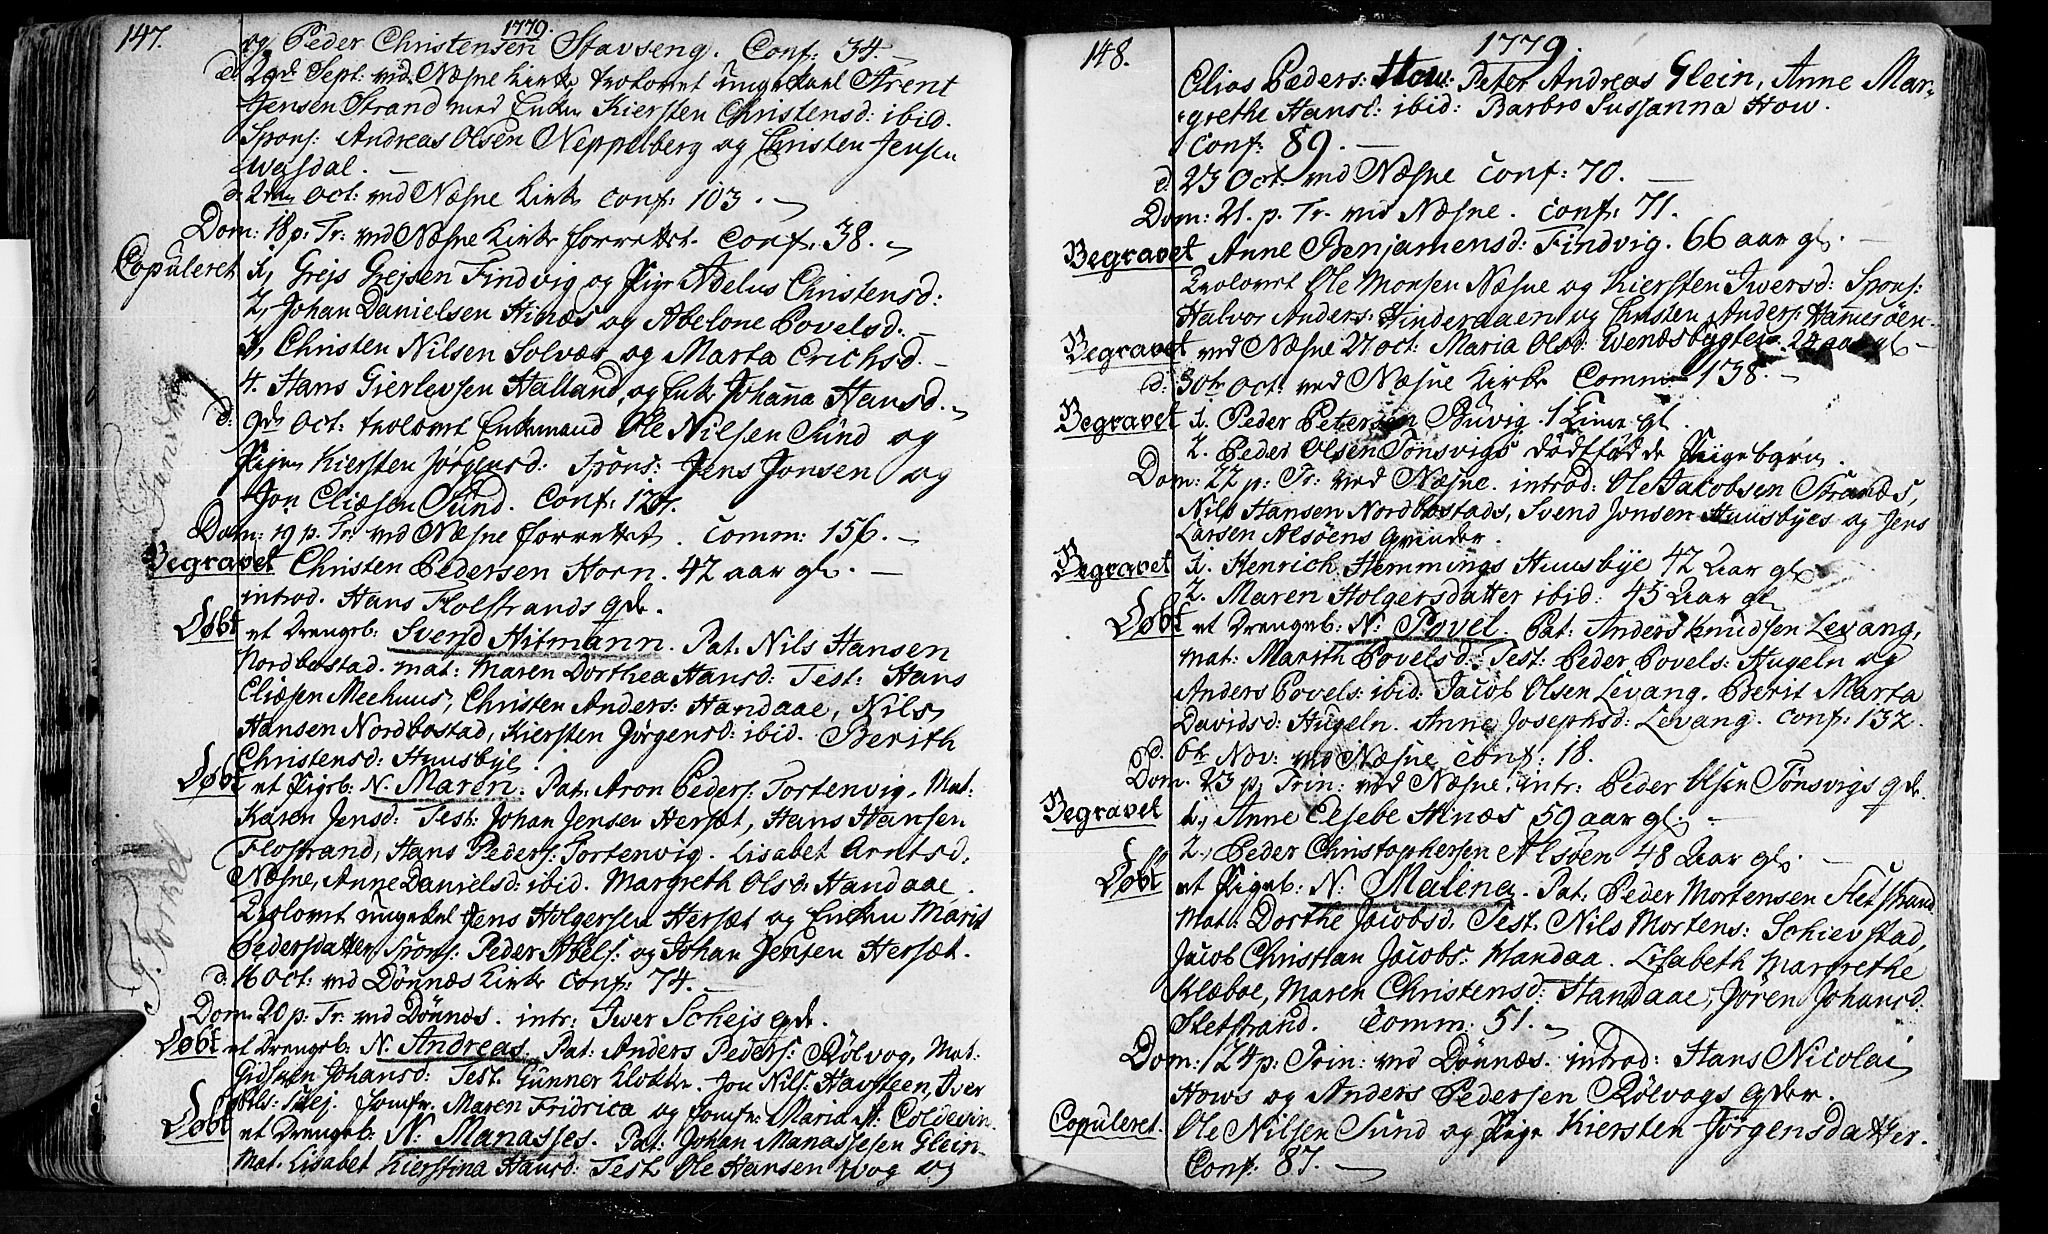 147.
1779.
og Peder Christensen Stavseng. Conf: 34.
d. 29de Sept: ved Næsne Kirke trolovet ungekarl Arent
Jensen Strand med Enken Kiersten Christensd: ibid.
Spons: Andreas Olsen Neppelberg og Christen Jensen
Wefsdal.
d. 2den Oct: ved Næsne Kirke conf: 103.
Dom: 18 p: Tr: ved Næsne Kirke forrettet. Conf: 38.
Copuleret 1, Grejs Grejsen Findvig og Pige Adelus Christensd:
2, Johan Danielsen Hinæs og Abelone Povelsd.
3, Christen Nilsen Solvær og Marta Erichsd.
4. Hans Gierlevsen Halland, og Enke Johanna Hansd.
d. 9de Oct: trolovet Enkemand Ole Nilsen Sund og
Pigen Kiersten Jørgensd: Spons: Jens Jonsen og
Jon Eliæsen Sund. Conf: 127.
Dom: 19 p: Tr: ved Næsne forrettet. comm: 156.
Begravet Christen Pedersen Horn. 42 aar gl.
introd. Hans Flostrands qde.
Døbt et Drengeb: Svend Hitmann. Pat: Nils Hansen
Nordbostad. mat: Maren Dorthea Hansd: Test: Hans
Eliæsen Meehuus, Christen Anders: Handaae, Nils
Hansen Nordbostad, Kiersten Jørgensd: ibid. Berith
Christensd: Huusbye.
Døbt et Pigeb: N. Maren. Pat: Aron Peders: Tortenvig. Mat:
Karen Jensd: Test: Johan Jensen Hersæt, Hans Hansen
Flostrand, Hans Peders: Tortenvig. Lisabet Arntsd.
Næsne, Anne Danielsd: ibid. Margreth Olsd: Handaae.
Trolovet ungekarl Jens Holgersen Hersæt og Enken Marit
Pedersdatter. Spons: Peder Abels: og Johan Jensen Hersæt.
d. 16 Oct: ved Dønnæs Kirke conf: 74.
Dom. 20 p: Tr: ved Dønnæs. intr: Iwer Schejs qde.
Døbt et Drengeb: N. Andreas. Pat: Anders Peders: Rølvog, Mat:
Johansd: Test: Gunner Klokker. Jon Nils: Havsteen, Iver
Nils: Skej. Jomfr. Maren Fridrica og Jomfr: Maria A: Coldevin.
Døbt et Drengeb: N: Manasses. Pat: Johan Manassesen Glein.
Mat. Lisabet Kierstina Hansd: Test. Ole Hansen Wog og
148.
1779.
Elias Peders: How. Peter Andreas Glein, Anne Mar-
grethe Hansd: ibid: Barbro Sussanna How.
Conf: 89.
d. 23 Oct: ved Næsne conf: 70.
Dom: 21. p. Tr. ved Næsne. conf: 71.
Begravet Anne Benjamensd: Findvig. 66 aar gl.
Trolovet Ole Monsen Næsne og Kiersten Iwersd: Spons:
Halvor Anders: Hinderaaen og Christen Anders: Hamesøen
Begravet ved Næsne 27 oct: Maria Olsd: 24 aar gl
d. 30te Oct: ved Næsne Kirke Comm: 138.
Begravet 1. Peder Petersen Buvig. 1 Time gl.
2. Peder Olsen Tønsvigs dødfødde Pigebarn.
Dom: 22 p: Tr: ved Næsne. introd: Ole Jakobsen Strands,
Nils Hansen Nordbostads, Svend Jonsen Huusbyes og Jens
Larsen Alsøens qvinder.
Begravet 1. Henrich Hemmings Huusbye 42 Aar gl
2. Maren Holgersdatter ibid: 45 Aar gl
Døbt et Drengeb: N: Povel. Pat: Anders Knudsen Levang,
mat: Marith Povelsd: Test: Peder Povels: Hugeln og
Anders Povels: ibid: Jacob Olsen Levang. Berit Marta
Davidsd: Hugeln. Anne Josephsd: Levang. conf: 132.
d. 6te Nov: ved Næsne conf: 18.
Dom. 23 p. Trin: ved Næsne. intr: Peder Olsen Tønsvigs qde.
Begravet 1., Anne Elsebe Hinæs 59 aar gl.
2., Peder Christophersen Alsøen 48 Aar gl.
Døbt et Pigeb: N: Malena. Pat: Peder Mortensen Sletstrand
Mat: Dorthe Jacobsd: Test: Nils Mortens: Schievstad,
Jacob Christian Jacobs: Handaa. Lisabeth Margrethe
Klæboe, Maren Christensd: Handaae, Jøren Johansd:
Sletstrand. Comm: 51.
Dom: 24 p: Trin: ved Dønnæs. introd: Hans Nicolai
Hows og Anders Pedersen Rølvogs qder.
Copuleret. Ole Nilsen Sund og Pige Kiersten Jørgensdatter.
Conf: 87.